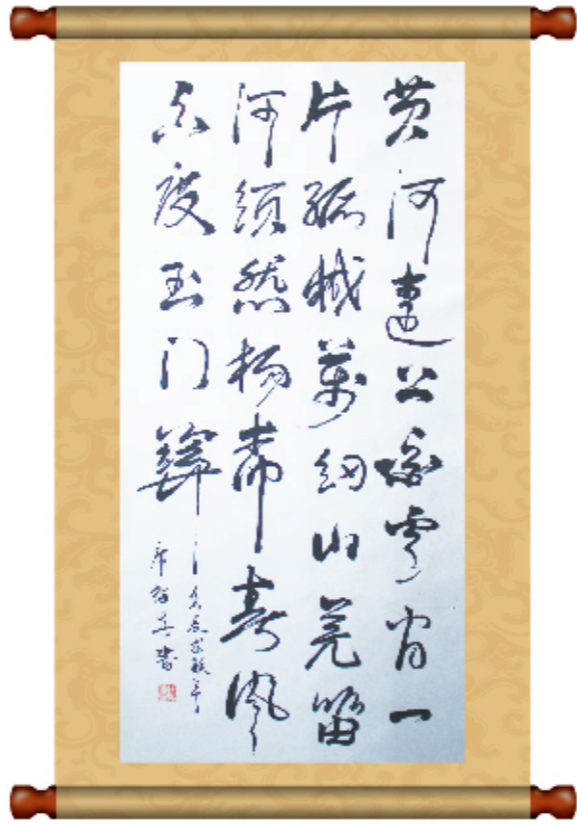 黄河遠上白雲间一
片孤城萬仞山羌笛
何须怨杨柳春风
不度玉门關
書